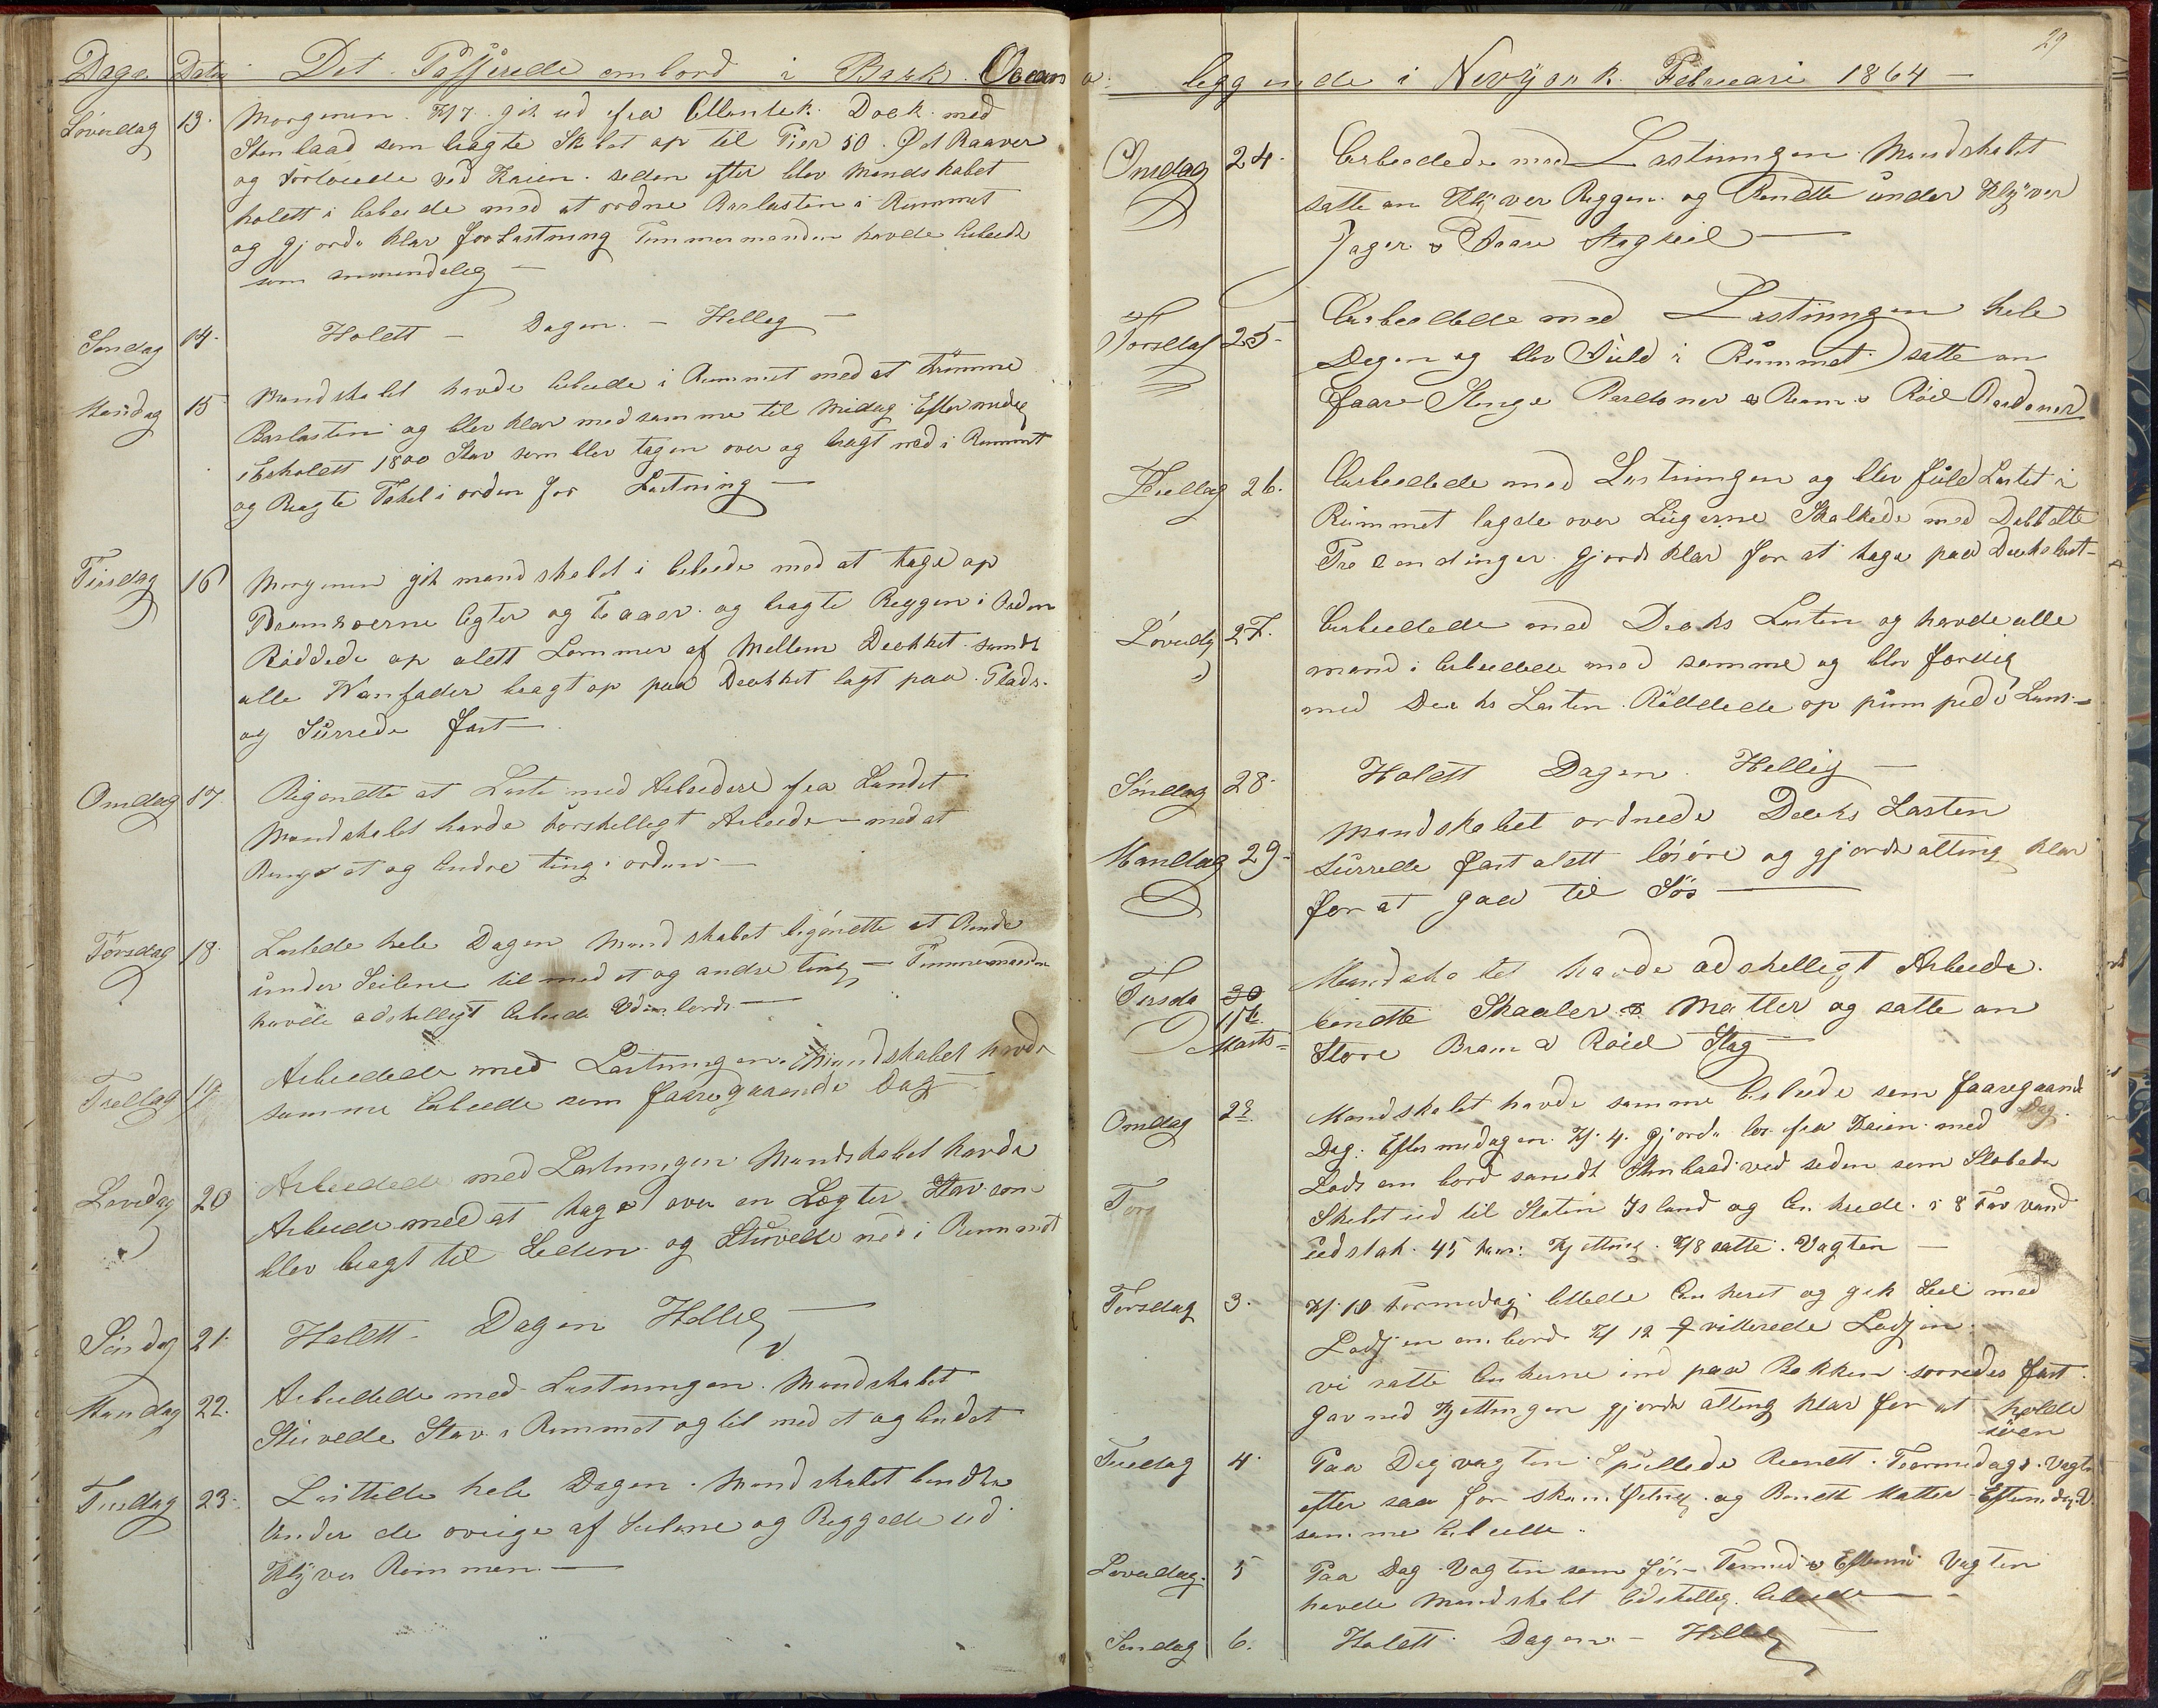 Dage. Dato Det Passerede ombord i Bark. Ocean
Løverdag 13. Morgenen. Kl 7. gik ud fra Atlentik. Dock. med
Stenbaad som bragte Skibet op til Pier 50. Øst Raaver
og fortøiede ved Kaien. seden efter blev Mandskabet
holett i Arbeide med at ordne Barlasten i Rummet
og gjorde klar for Lastning Tømmermanden havde Arbeide
som almindelig —
Søndag 14. Holett — Dagen. — Hellig —
Mandag 15 Mandskabet havde Arbeide i Rummet med at trimme
Barlasten og blev klar med samme til Midag Eftermidag
1800 Stav som blev tagen over og bragt ned i Rummet
og Bragte Takel i orden for Lastning —
Tirsdag 16 Morgenen gik mandskabet i Arbeide med at tage op
og bragte Reggen i Orden
Røddede op alett Lommer af Mellem Dækket samdt
alle Wanfader bragt op paa Dækket lagt paa Plads.
og Surrede fast —
Onsdag 17 Begendte at Laste med Arbeidere fra Landet
Mandskabet havde forskelligt Arbeide — med at
Rengøre og Andre ting i orden —
Torsdag 18. Lastede hele Dagen Mandskabet begendte at Bende
under Seilene til med et og andre ting — Tømmermanden
havde adskelligt Arbeide Udenbords —
Fredag 19. Arbeidede med Lastningen. Mandskabet havde
samme Arbeide som faaregaaende Dag —
Løverdag 20 Arbeidede med Lastningen Mandskabet havde
Arbeide med at tage over en Legter Stav som
blev bragt til Seden og Stuvede ned i Rummet
Søndag 21. Holett. Dagen Hellig —
Mandag 22. Arbeidede med Lastningen. Mandskabet
Stuvede Stav i Rummet og til med et og Andet
Tirsdag 23. Lastede hele Dagen. Mandskabet bendte
Under de øvrige af Seilene og Reggede ud
Klyver Bommen. —
29
leggende i Nevyork. Februari 1864 —
Onsdag 24. Arbeidede med Lastningen Mandskabet
satte an Klyver Reggen. og Bendte under Klyver
Jager & Faare Stagseil —
Torsdag 25 Arbeidede med Lastningen hele
Degen og blev Fuld i Rummet satte an
Faare Stenge Bardoner & Bram & Røil Bardoner
Fredag 26. Arbeidede med Lastningen og blev fuld Lastet i
Rummet lagde over Lugerne Skalkede med Dobbelte
Presendinger. gjorde klar for at tage paa Dækslast —
Løverdag 27. Arbeidede med Deks Lasten og havde alle
mand i Arbeide med samme og blev færdig
med Deeks Lasten. Røddede op pumpede Lens —
Søndag 28. Holett Dagen. Hellig —
Mandag 29. Mandskabet ordnede Decks Lasten
Surrede fast alett løsøre og gjorde alting klar
for at gaa til Søs —
Tirsda 30 1ste Marts Mandskabet havde adskelligt Arbeide.
bendte Skaaler & Matter og satte an
Store Bram & Røil Stag —
Onsdag 2de Mandskabet havde samme Arbeide som faaregaande
Dag
Dag. Eftermidagen. Kl. 4. gjorde los fra Kaien. med
Lods om bord samdt Stenbaad ved seden som Slæbede
Tors Skibet ud til Staten Island og Ankrede. i 8 Fav vand
udstak. 45 Kjetting. Kl 8 satte. Vagten —
Torsdag 3. Kl. 10 Formidag lettede Ankeret og gik Seil med
Lodsen om bord. Kl 12 Qvitterede Lodsen
vi satte Ankerne ind paa Bakken. sorredes fast.
gav ned Kjettingen gjorde alting klar for at holde
søen
Fredag 4. Paa Dagvagten Spullede Remett. Formidags. Vagten
efter saa for skamfeling. og Bendte Matter Eftermidag V
samme Arbeide.
Løverdag. 5 Paa Dag Vagten som før — Formid & Eftermi Vagten
havde Mandskabet Adskellig. Arbeide —
Søndag 6. Holett. Dagen. — Hellig —